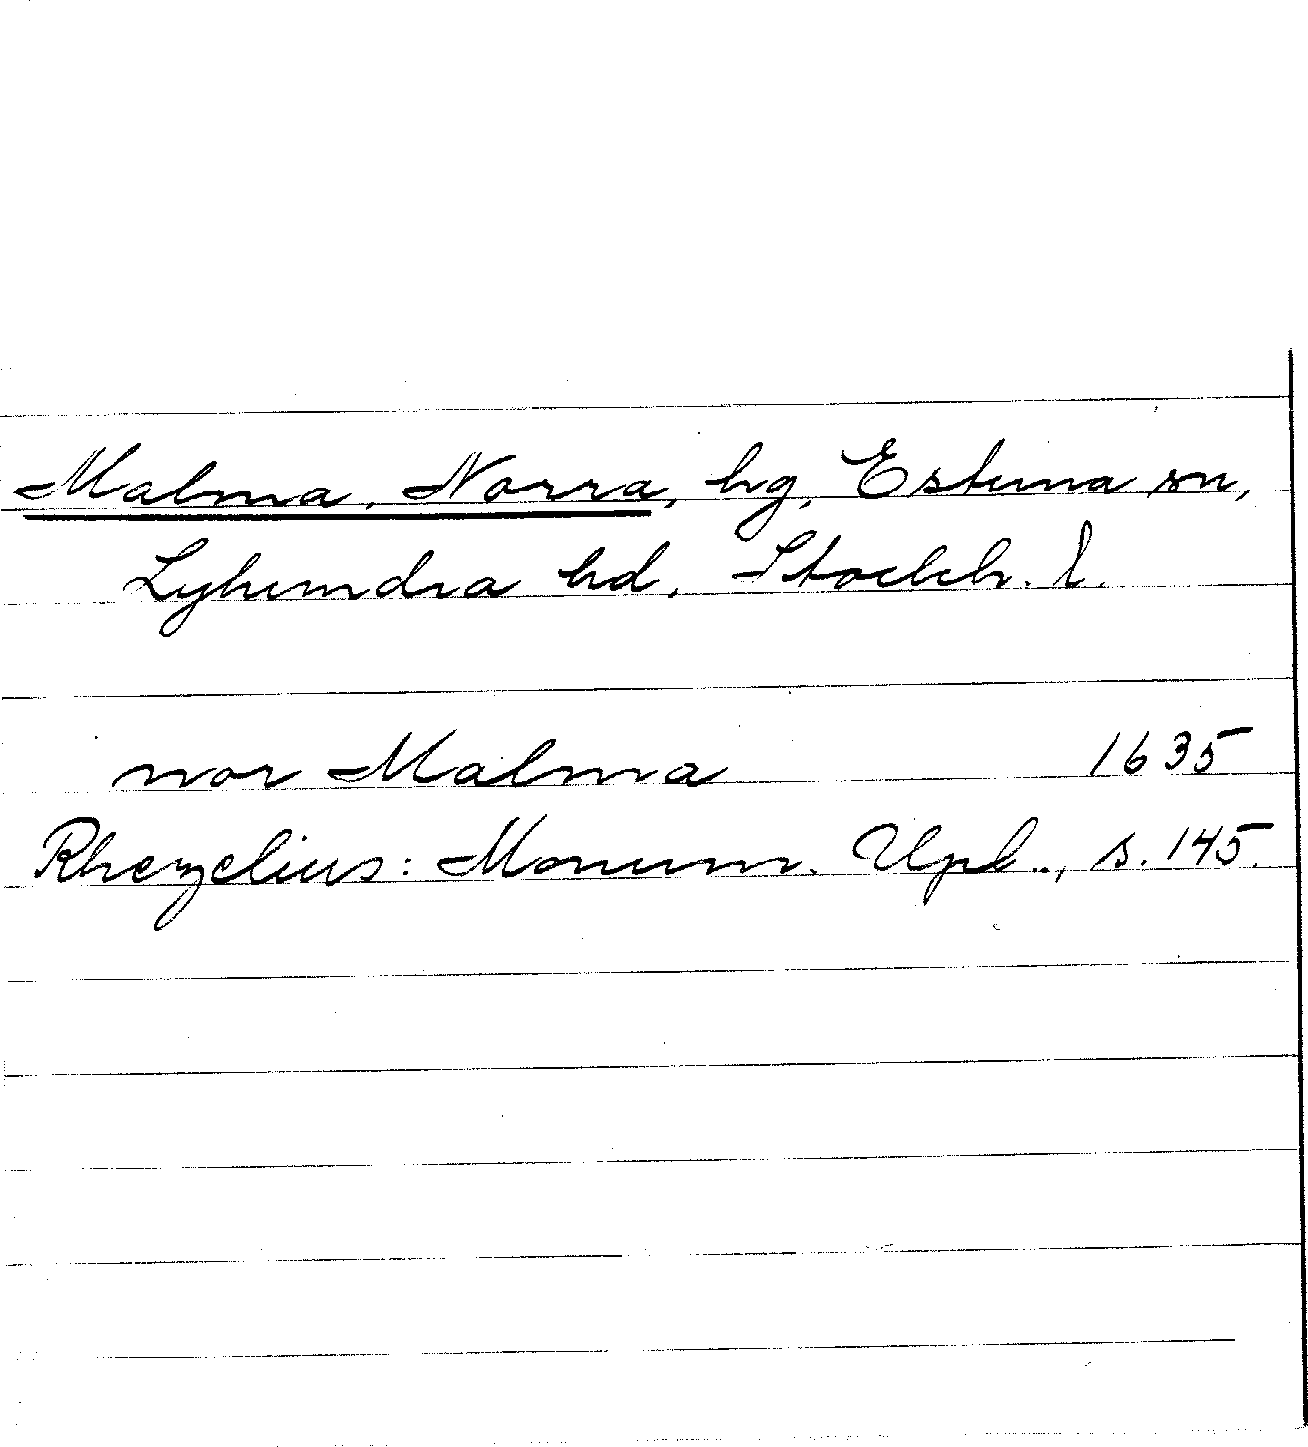 Malma, Norra, hg, Estuna sn,
Lyhundra hd, Stockh. l.
nor Malma 1635
Rhezelius: Monum. Upl.., s. 145.